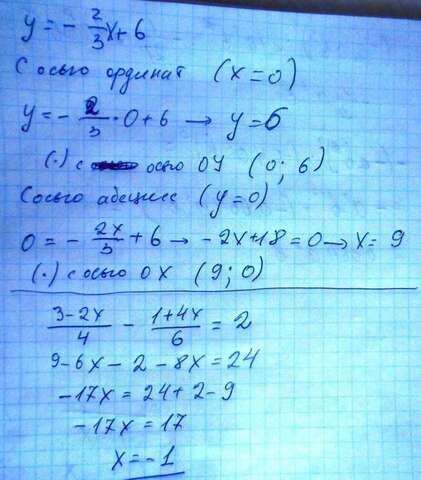 y = - 2/3 x + 6
С осью ординат (x = 0)
y = - 2/3 · 0 + 6 → y = 6
(·) с осью OY (0; 6)
С осью абсцисс (y = 0)
0 = - 2x/3 + 6 → - 2x + 18 = 0 → x = 9
(·) с осью OX (9; 0)
3-2x/4 - 1+4x/6 = 2
9 - 6x - 2 - 8x = 24
-17x = 24 + 2 - 9
-17x = 17
x = -1